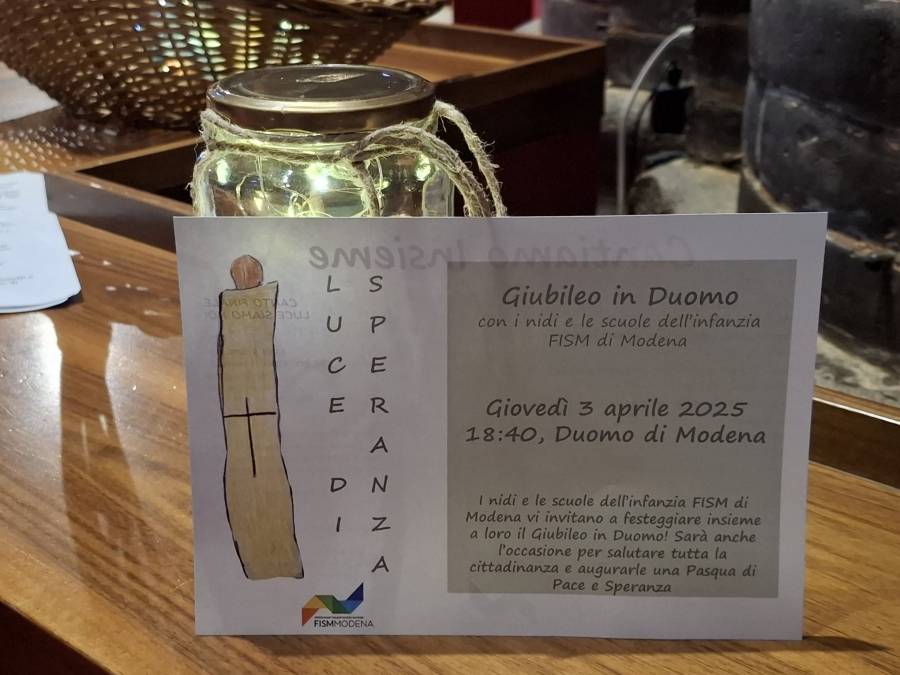 LUCE DI
SPERANZA
Giubileo in Duomo
con i nidi e le scuole dell'infanzia
FISM di Modena
Giovedì 3 aprile 2025
18:40, Duomo di Modena
I nidi e le scuole dell'infanzia FISM di
Modena vi invitano a festeggiare insieme
a loro il Giubileo in Duomo! Sarà anche
l'occasione per salutare tutta la
cittadinanza e augurarle una Pasqua di
Pace e Speranza
FISMMODENA
Cantiamo Insieme
CANTO FINALE
LUCE SIAMO NOI